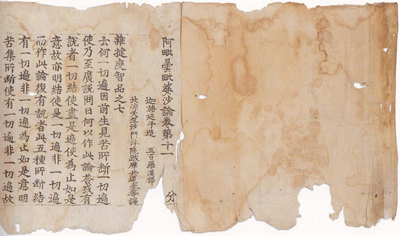 阿毗曇毗婆沙論卷第十一 分一
迦旃延子造 五百羅漢釋
北涼天竺沙門浮陀跋摩共道泰等譯
雜揵度智品之七
云何一切遍因前生見苦所斷一切遍
使乃至廣說問曰何以作此論荅或有
說者一切結使盡是遍使為止如是
意故亦明結使是一切遍非一切遍
而作此論復有說者此五種所斷結
有一切遍非一切遍為止如是意明
苦集所斷使有一切遍非一切遍故